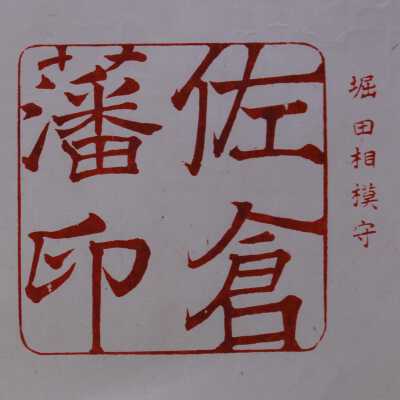 堀田相模守
佐倉
藩印